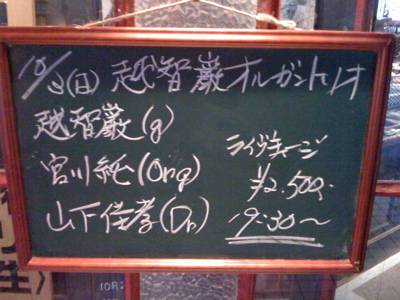 10/3(日) 越智巌オルガントリオ
越智巌(g)
宮川純(Org)
山下佳孝(Dr)
ライヴチャージ
¥2,500.
19:30〜